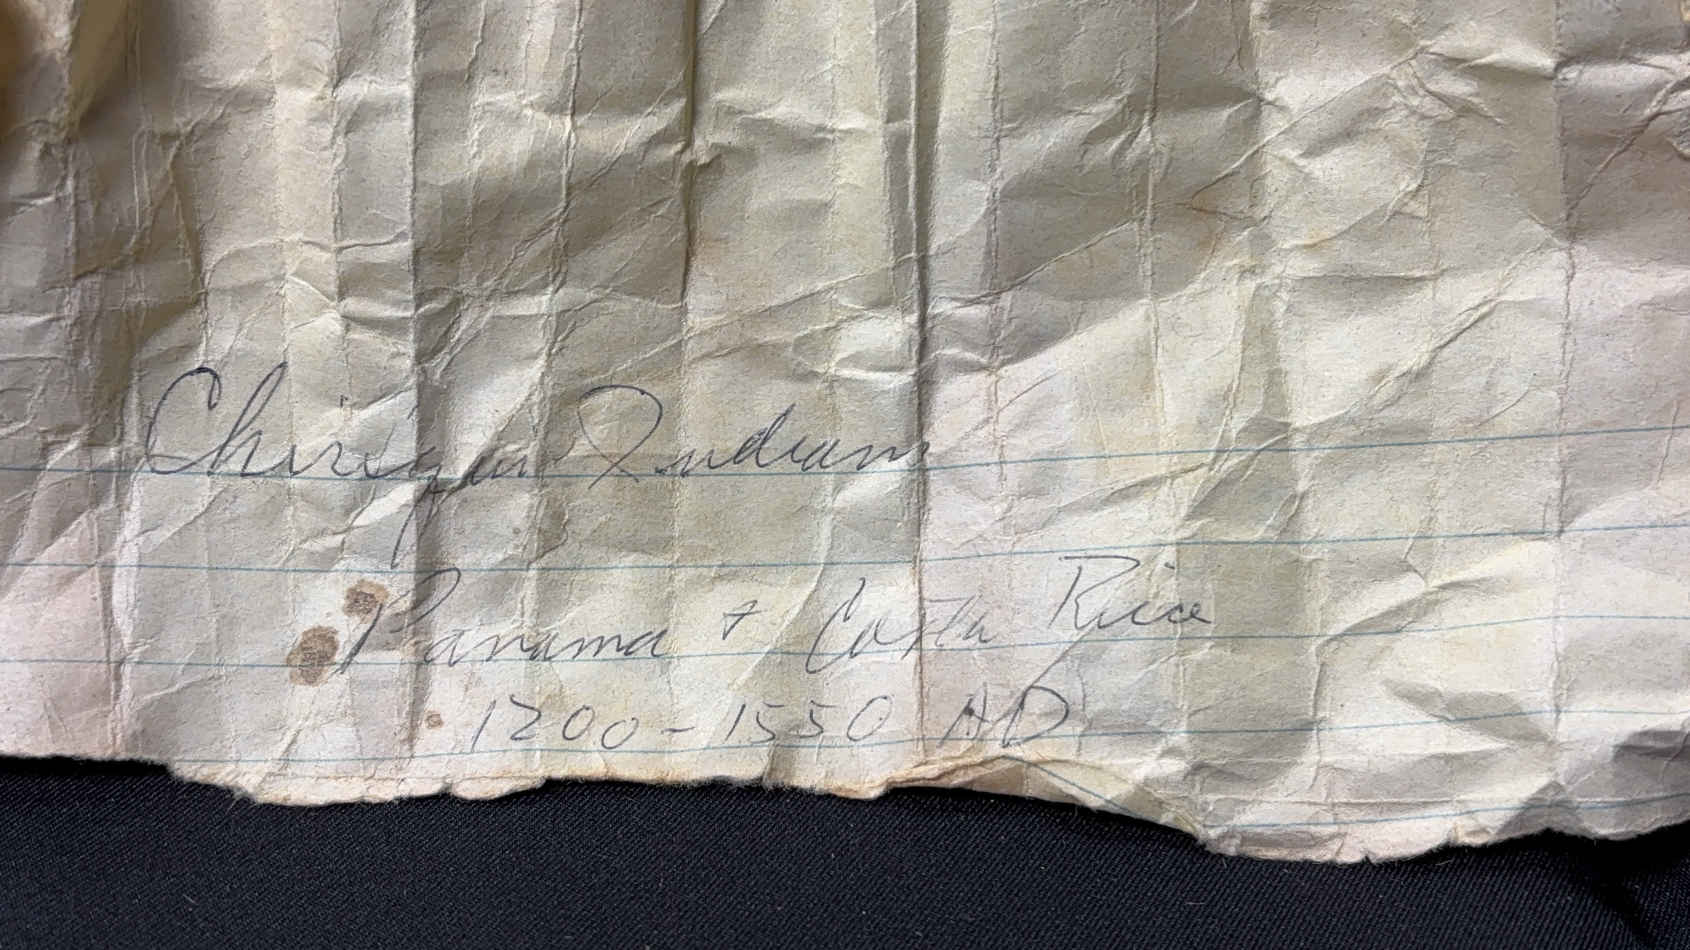 Chiriqui Indians
Panama + Costa Rica
1200-1550 AD